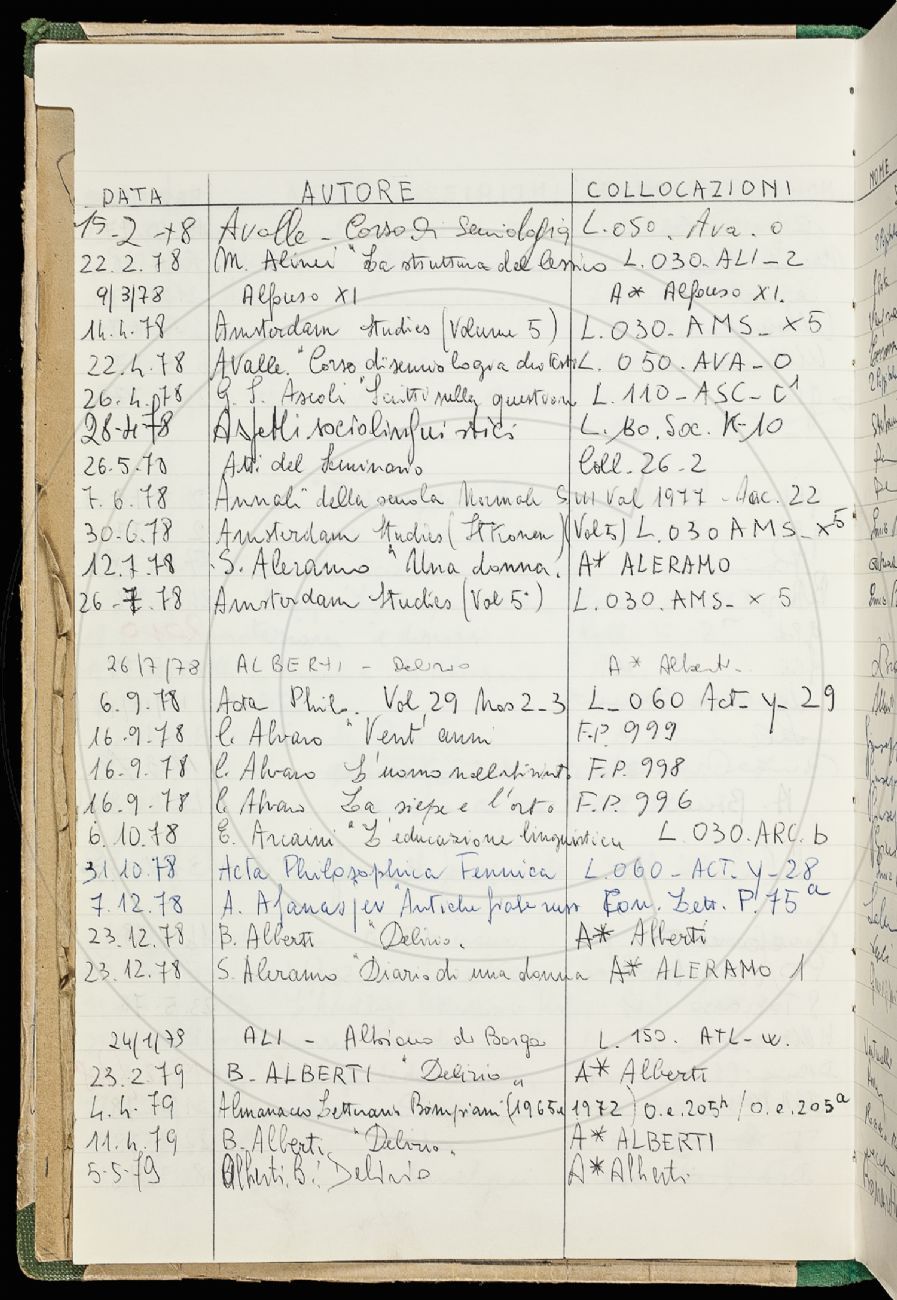 DATA AUTORE COLLOCAZIONI
15-2 78 Avalle - Corso di Semiologia L.050. Ava. 0
22.2.78 M. Alinei "La struttura del lessico L.030-ALI-2
9/3/78 Alfonso XI A* Alfonso XI.
14.4.78 Amsterdam Studies (Volume 5) L.030-AMS-x5
22.4.78 Avalle "Corso di semiologia L. 050.AVA-0
26.4.78 G. I. Ascoli "Scritti sulla questione L.110-ASC-C1
28-4-78 Aspetti sociolinguistici L. Bo. Soc. K-10
26.5.78 Atti del Seminario Coll-26-2
7.6.78 Annali della scuola Normale S. VII Vol 1977 - 22
30-6.78 Amsterdam Studies (Itkonen) (Vol 5) L.030 AMS-x5
12.7.78 S. Aleramo "Una donna. A* ALERAMO
26-7.78 Amsterdam Studies (Vol 5°) L.030.AMS-x5
26/7/78 ALBERTI - Delirio A* Alberti.
6.9.78 Acta Phil. Vol 29 Nos 2-3 L-060 Act-y-29
16.9.78 C. Alvaro "Vent'anni F.P. 999
16.9.78 C. Alvaro L'uomo nel labirinto F.P. 998
16.9.78 C. Alvaro La siepe e l'orto F.P. 996
6.10.78 E. Arcaini "L'educazione linguistica L 030.ARC.b
31.10.78 Acta Philosophica Fennica L.060-ACT.y-28
7.12.78 A. Afanasjev "Antiche fiabe russe Con. Lett. P.75a
23.12.78 B. Alberti "Delirio. A* Alberti
23.12.78 S. Aleramo "Diario di una donna A* ALERAMO 1
24/1/79 ALI - Albiano di Barga L. 150. ATL-w.
23.2.79 B-ALBERTI "Delirio" A* Alberti
4.4.79 Almanacco Letterario Bompiani (1965 e 1972) O.e.205h / O.e.205a
11.4.79 B. Alberti "Delirio. A* ALBERTI
5-5-79 Alberti B.: Delirio A* Alberti
NOME